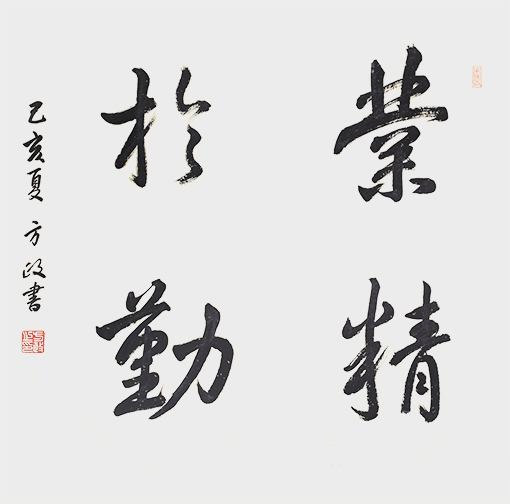 業精
於勤
己亥夏方政書